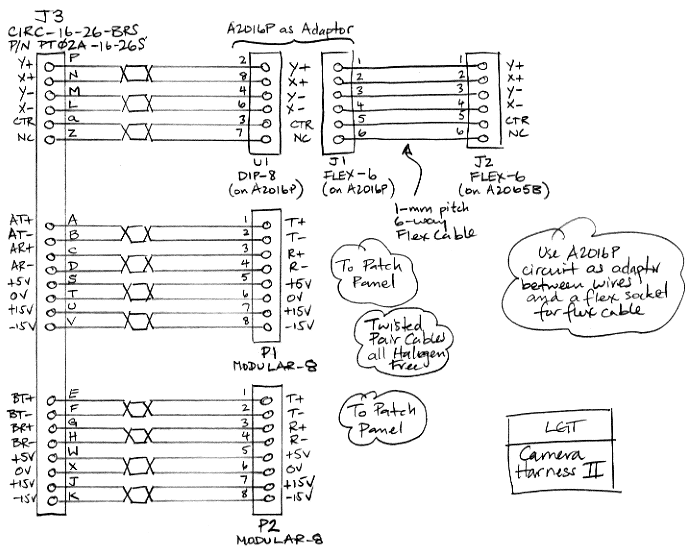 J3
CIRC-16-26-BRS
P/N PT02A-16-26S
A2016P as Adaptor
Y+ P 2 Y+ 1 1 Y+
X+ N 8 X+ 2 2 X+
Y- M 4 Y- 3 3 Y-
X- L 6 X- 4 4 X-
CTR a 3 CTR 5 5 CTR
NC Z 7 NC 6 6 NC
U1
DIP-8
(on A2016P)
J1
FLEX-6
(on A2016P)
J2
FLEX-6
(on A2065B)
1-mm pitch
6-way
Flex Cable
AT+ A 1 T+
AT- B 2 T-
AR+ C 3 R+
AR- D 4 R-
+5V S 5 +5V
0V T 6 0V
+15V U 7 +15V
-15V V 8 -15V
P1
MODULAR-8
To Patch
Panel
Twisted
Pair Cables
all Halogen
Free
Use A2016P
circuit as adaptor
between wires
and a flex socket
for flex cable
BT+ E 1 T+
BT- F 2 T-
BR+ G 3 R+
BR- H 4 R-
+5V W 5 +5V
0V X 6 0V
+15V J 7 +15V
-15V K 8 -15V
P2
MODULAR-8
To Patch
Panel
LGT
Camera
Harness II